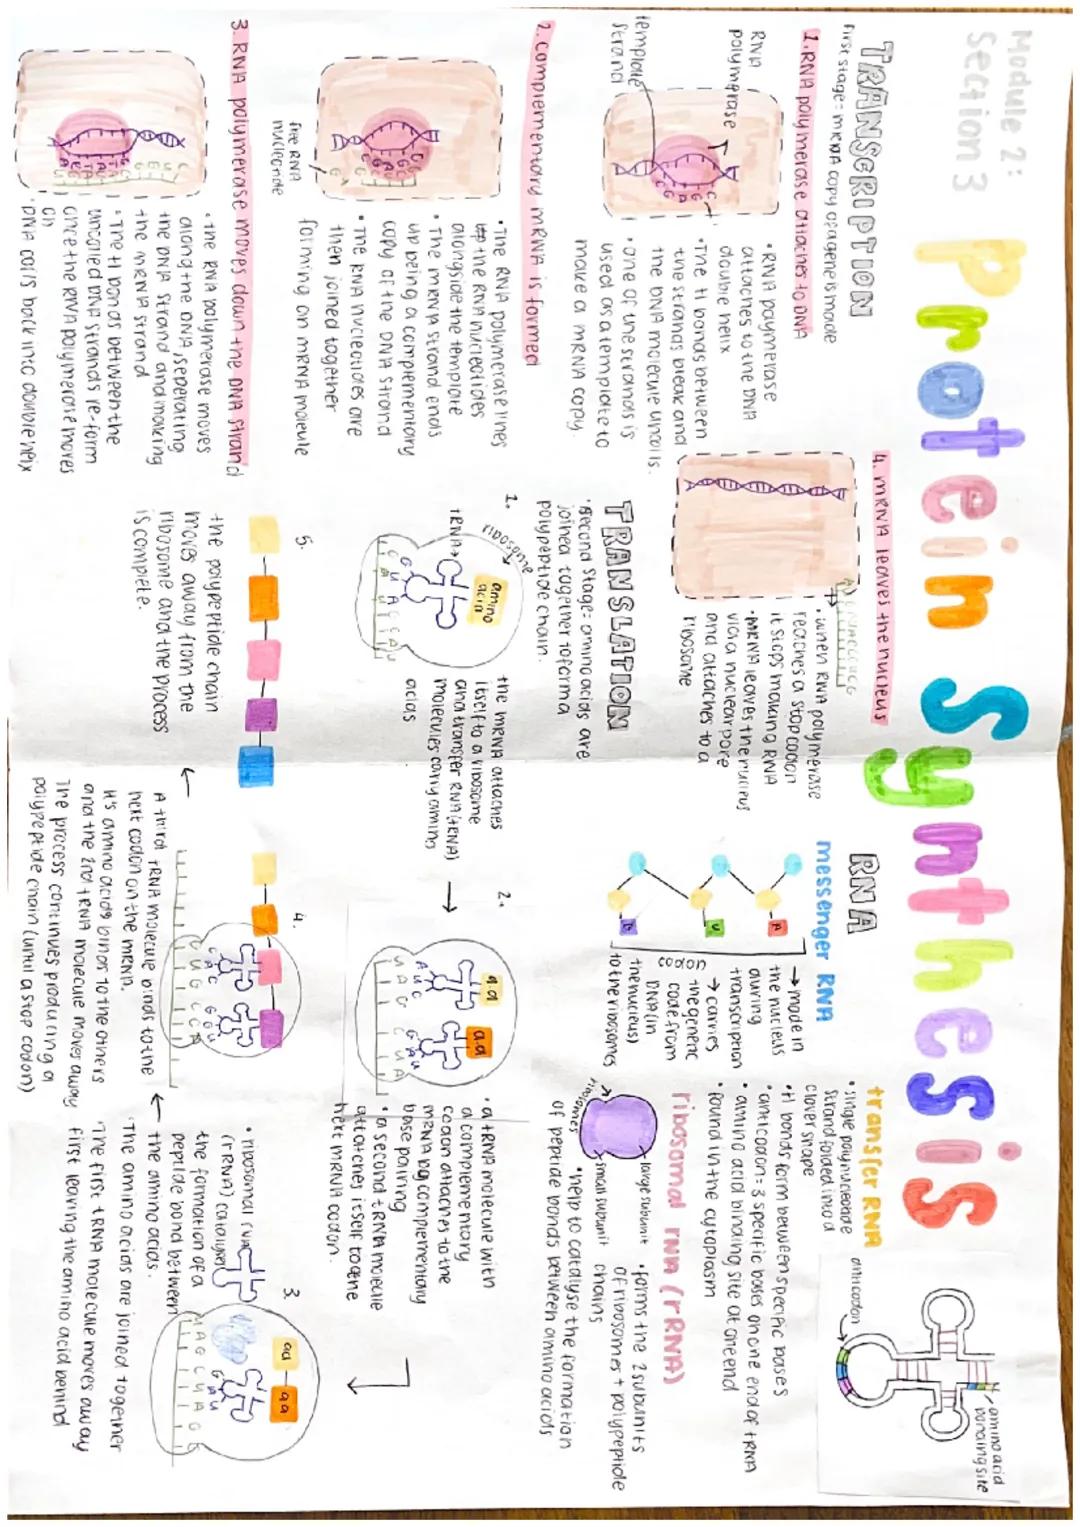 Module 2:
Section 3
Protein Synthesis
TRANSCRIPTION
First stage = mRNA copy of a gene is made
1. RNA polymerase attaches to DNA
RNA
polymerase
template
strand
• RNA polymerase
attaches to the DNA
double helix
• The H bonds between
the strands break and
the DNA molecule uncoils.
• one of the strands is
used as a template to
make a mRNA copy.
2. Complementary mRNA is formed
free RNA
nucleotide
• The RNA polymerase lines
up the RNA nucleotides
alongside the template
• The mRNA strand ends
up being a complementary
copy of the DNA strand
• The RNA nucleotides are
then joined together
forming an mRNA molecule
3. RNA polymerase moves down the DNA strand
• the RNA polymerase moves
along the DNA, seperating
the DNA strand and making
the mRNA strand
• The H bonds between the
uncoiled DNA strands re-form
once the RNA polymerase moves
on
• DNA coils back into double helix
4. mRNA leaves the nucleus
• when RNA polymerase
reaches a stop codon
it stops making RNA
• mRNA leaves the nucleus
via a nuclear pore
and attaches to a
ribosome
TRANSLATION
• Second Stage = amino acids are
joined together to form a
polypeptide chain.
1.
ribosome
tRNA
amino
acid
the mRNA attaches
itself to a ribosome
and transfer RNA (tRNA)
molecules carry amino
acids
2.
a.a
a.a
U A G C U A
A U C G A U
• a tRNA molecule with
a complementary
codon attaches to the
mRNA by complementary
base pairing
• a second tRNA molecule
attatches itself to the
next mRNA codon.
3.
aa
aa
G A U
• ribosomal RNA
(rRNA) catalyses
the formation of a
peptide bond between
the amino acids.
• The amino acids are joined together
• The first tRNA molecule moves away
first leaving the amino acid behind
4.
A third tRNA molecule binds to the
next codon on the mRNA.
It's amino acids binds to the others
and the 2nd tRNA molecule move away
The process continues producing a
polypeptide chain (until a stop codon)
5.
the polypeptide chain
moves away from the
ribosome and the process
is complete.
RNA
messenger RNA
A
U
codon
→ made in
the nucleus
during
transcription
→ carries
the genetic
code from
DNA (in
the nucleus)
to the ribosomes
transfer RNA
• single polynucleotide
strand folded into a
clover shape
• H bonds form between specific bases
• anticodon = 3 specific bases on one end of tRNA
• amino acid binding site at one end
• found in the cytoplasm
anticodon
amino acid
binding site
ribosomal rna (rRNA)
ribosomes
large subunit
small subunit
• forms the 2 subunits
of ribosomes + polypeptide
chains
• help to catalyse the formation
of peptide bonds between amino acids